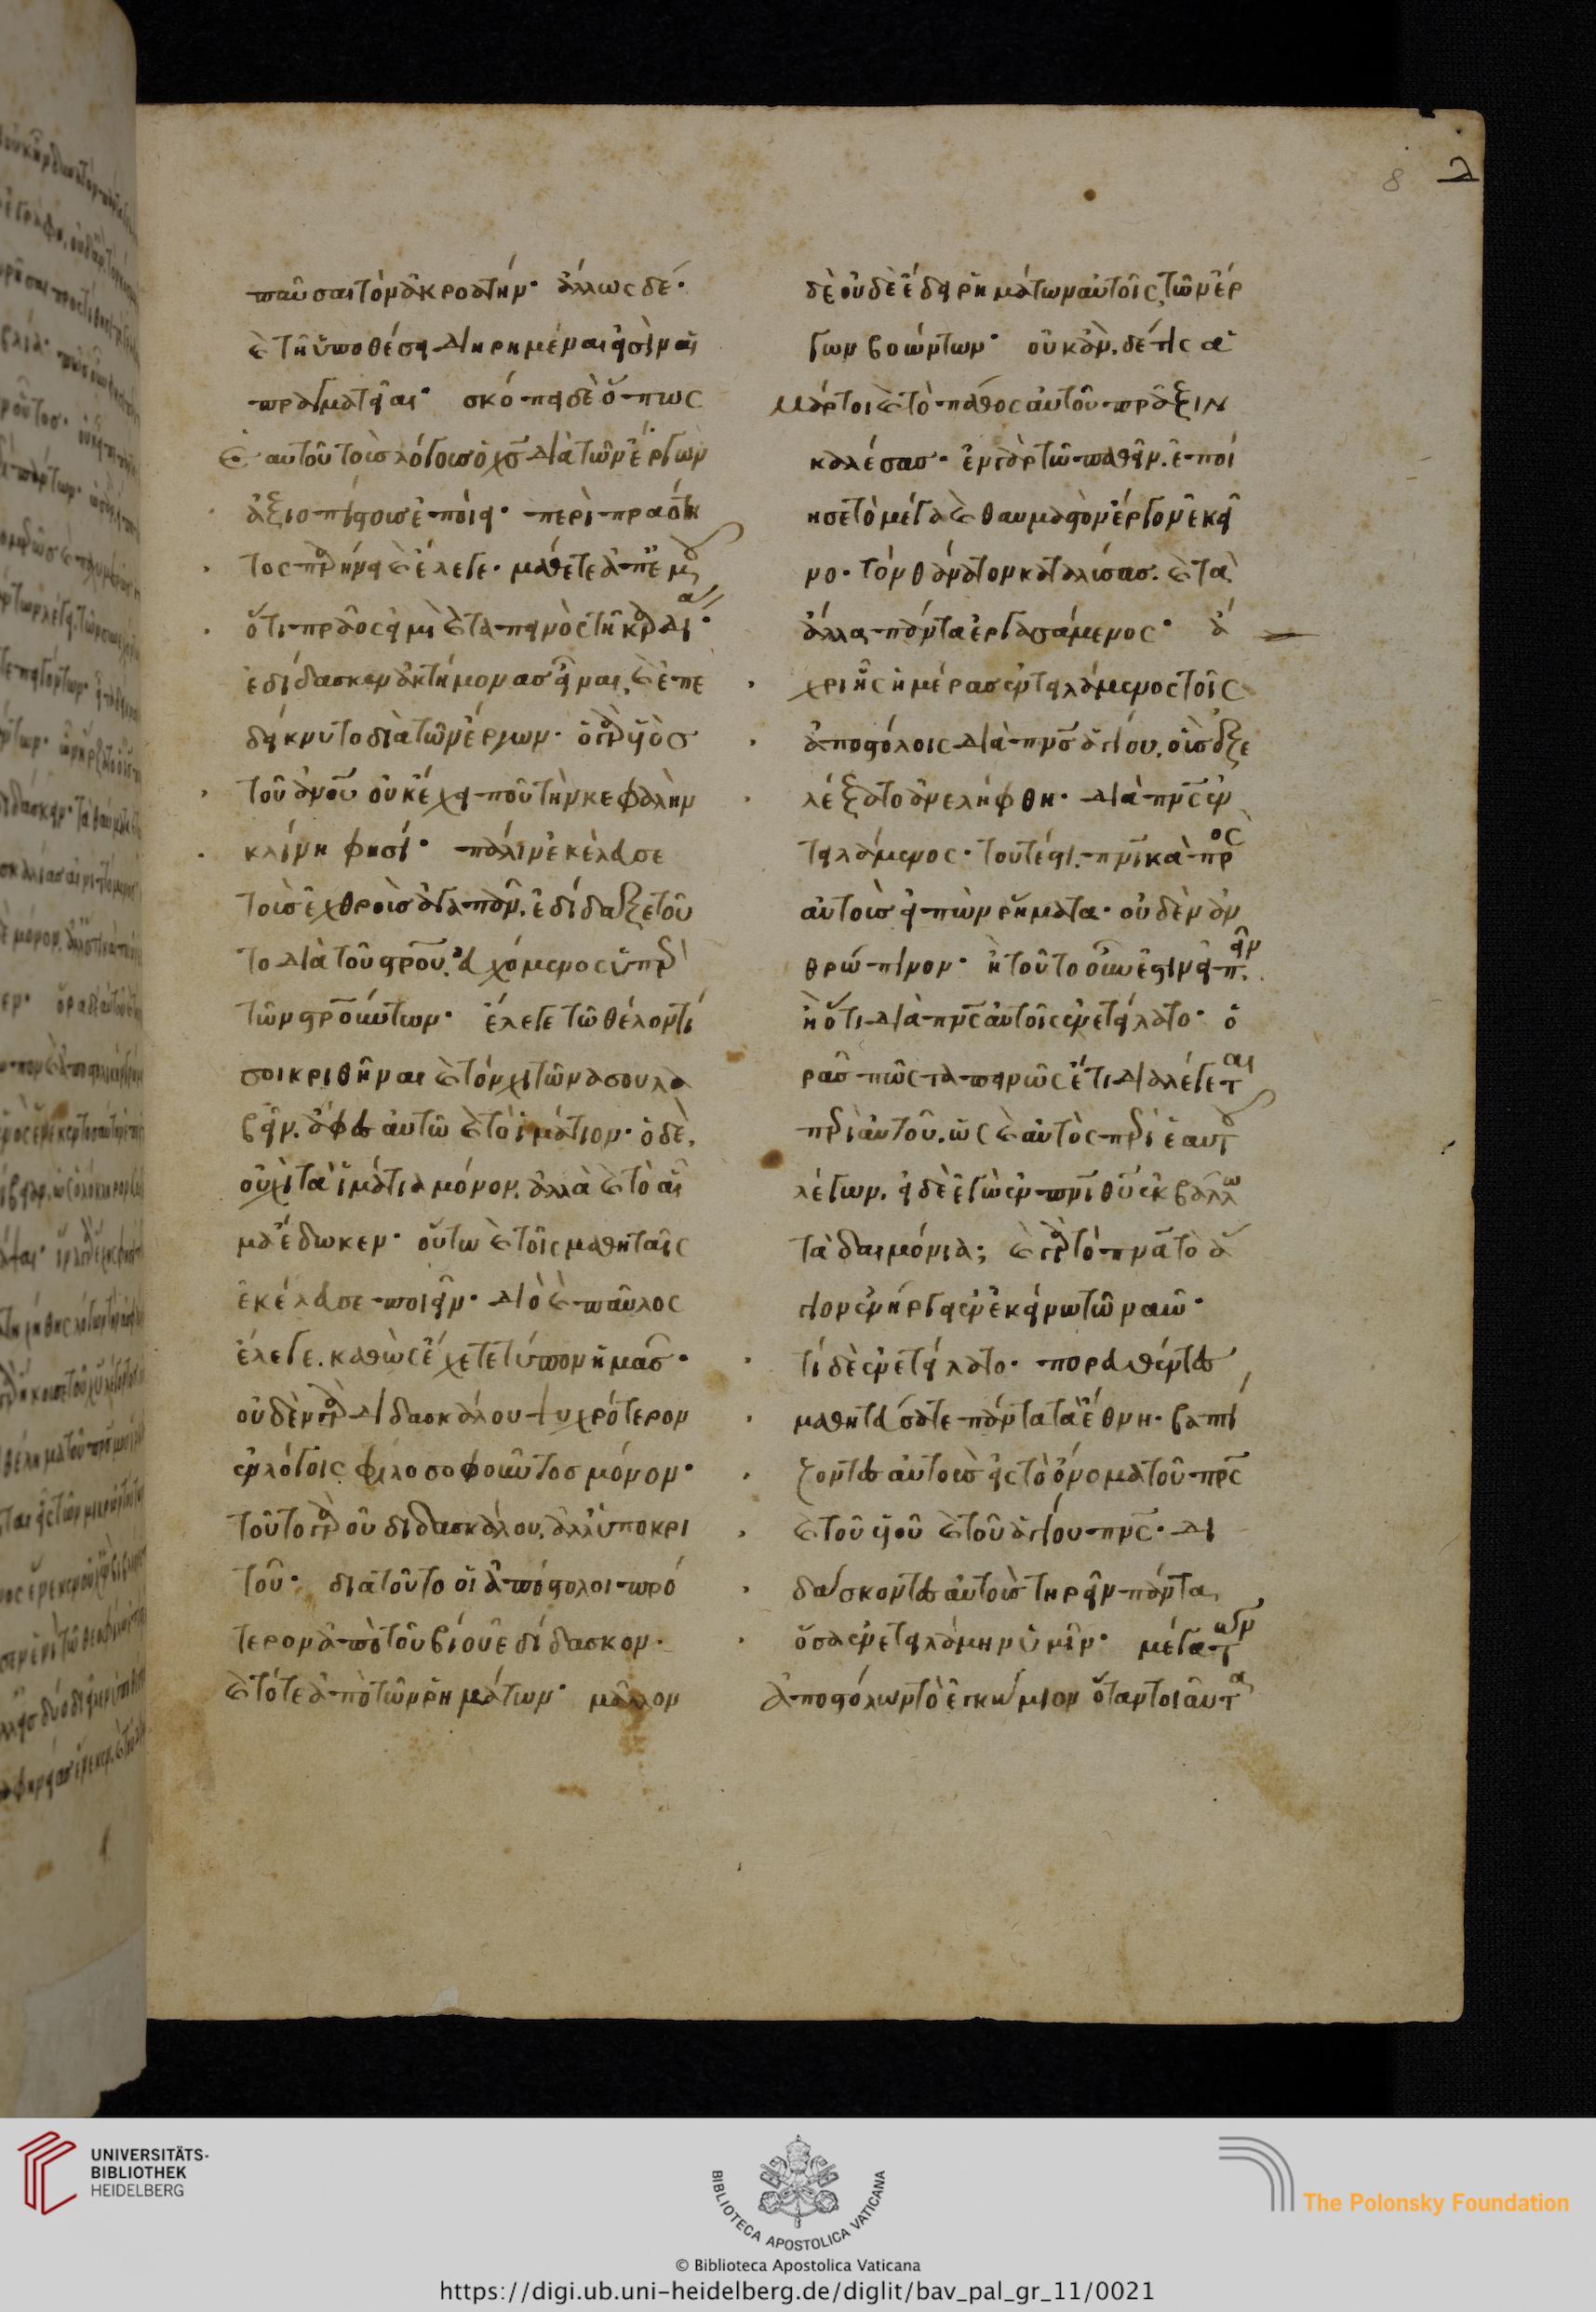 8
παῦσαι τὸν ἀκροατήν· ἄλλως δέ·
καὶ τῇ ὑποθέσει διηρημέναι εἰσὶν αἱ
πραγματεῖαι· σκόπει δὲ ὅπως
καὶ αὐτοῦ τοῖς λόγοις ὁ χς διὰ τῶν ἔργων
ἀξιοπίστους ἐποίει· περὶ πραότη
τος παρήνει καὶ ἔλεγε· μάθετε ἀπ' ἐμοῦ
ὅτι πρᾶος εἰμὶ καὶ ταπεινὸς τῇ καρδίᾳ·
ἐδίδασκεν ἀκτήμονας εἶναι, καὶ ἐπε
δείκνυτο διὰ τῶν ἔργων· ὁ γὰρ υἱὸς
τοῦ ἀνου οὐκ ἔχει ποῦ τὴν κεφαλὴν
κλίνῃ φησί· πάλιν ἐκέλευσε
τοὺς ἐχθροὺς ἀγαπᾶν. ἐδίδαξε τοῦ
το διὰ τοῦ σρου. εὐχόμενος ὑπὲρ
τῶν σρούντων· ἔλεγε τῷ θέλοντί
σοι κριθῆναι καὶ τὸν χιτῶνα σου λα
βεῖν. ἄφες αὐτῷ καὶ τὸ ἱμάτιον· ὁ δὲ,
οὐχὶ τὰ ἱμάτια μόνον. ἀλλὰ καὶ τὸ αἷ
μα ἔδωκεν· οὕτω καὶ τοῖς μαθηταῖς
ἐκέλευσε ποιεῖν· διὸ καὶ παῦλος
ἔλεγε. καθὼς ἔχετε τύπον ἡμᾶς·
οὐδὲν γὰρ διδασκάλου ψυχρότερον
ἐν λόγοις φιλοσοφοῦντος μόνον·
τοῦτο γὰρ οὐ διδασκάλου. ἀλλ' ὑποκρι
τοῦ· διὰ τοῦτο οἱ ἀπόστολοι πρό
τερον ἀπὸ τοῦ βίου ἐδίδασκον.
καὶ τότε ἀπὸ τῶν ῥημάτων· μᾶλλον
δὲ οὐδὲ ἔδει ῥημάτων αὐτοῖς, τῶν ἔρ
γων βοώντων· οὐκ ἂν. δέ τις ἁ
μάρτοι καὶ τὸ πάθος αὐτοῦ πρᾶξιν
καλέσας· ἐν γὰρ τῷ παθεῖν. ἐποί
ησε τὸ μέγα καὶ θαυμαστὸν ἔργον ἐκεῖ
νο· τὸν θάνατον καταλύσας. καὶ τὰ
ἄλλα πάντα ἐργασάμενος· ἄ
χρι ἧς ἡμέρας ἐντειλάμενος τοῖς
ἀποστόλοις διὰ πνς ἁγίου, οὓς ἐξε
λέξατο ἀνελήφθη· διὰ πνς ἐν
τειλάμενος· τουτέστι. πνικὰ πρὸς
αὐτοὺς εἰπὼν ῥήματα· οὐδὲν ἀν
θρώπινον· ἢ τοῦτο οὖν ἐστιν εἰπεῖν.
ἢ ὅτι διὰ πνς αὐτοῖς ἐνετείλατο· ὁ
ρᾶς πῶς ταπεινῶς ἔτι διαλέγεται
περὶ αὐτοῦ. ὡς καὶ αὐτὸς περὶ ἑαυτοῦ
λέγων. εἰ δὲ ἐγὼ ἐν πνι θυ ἐκβάλλω
τὰ δαιμόνια; καὶ γὰρ τὸ πνα τὸ ἅ
γιον ἐνήργει ἐν ἐκείνῳ τῷ ναῷ·
τί δὲ ἐνετείλατο· πορευθέντες
μαθητεύσατε πάντα τὰ ἔθνη. βαπτί
ζοντες αὐτοὺς εἰς τὸ ὄνομα τοῦ πρς
καὶ τοῦ υἱοῦ καὶ τοῦ ἁγίου πνς· δι
δάσκοντες αὐτοὺς τηρεῖν πάντα
ὅσα ἐνετειλάμην ὑμῖν· μέγα τῶν
ἀποστόλων τὸ ἐγκώμιον ὅταν τοιαῦτα
UNIVERSITÄTS-
BIBLIOTHEK
HEIDELBERG
BIBLIOTECA APOSTOLICA VATICANA
The Polonsky Foundation
© Biblioteca Apostolica Vaticana
https://digi.ub.uni-heidelberg.de/diglit/bav_pal_gr_11/0021